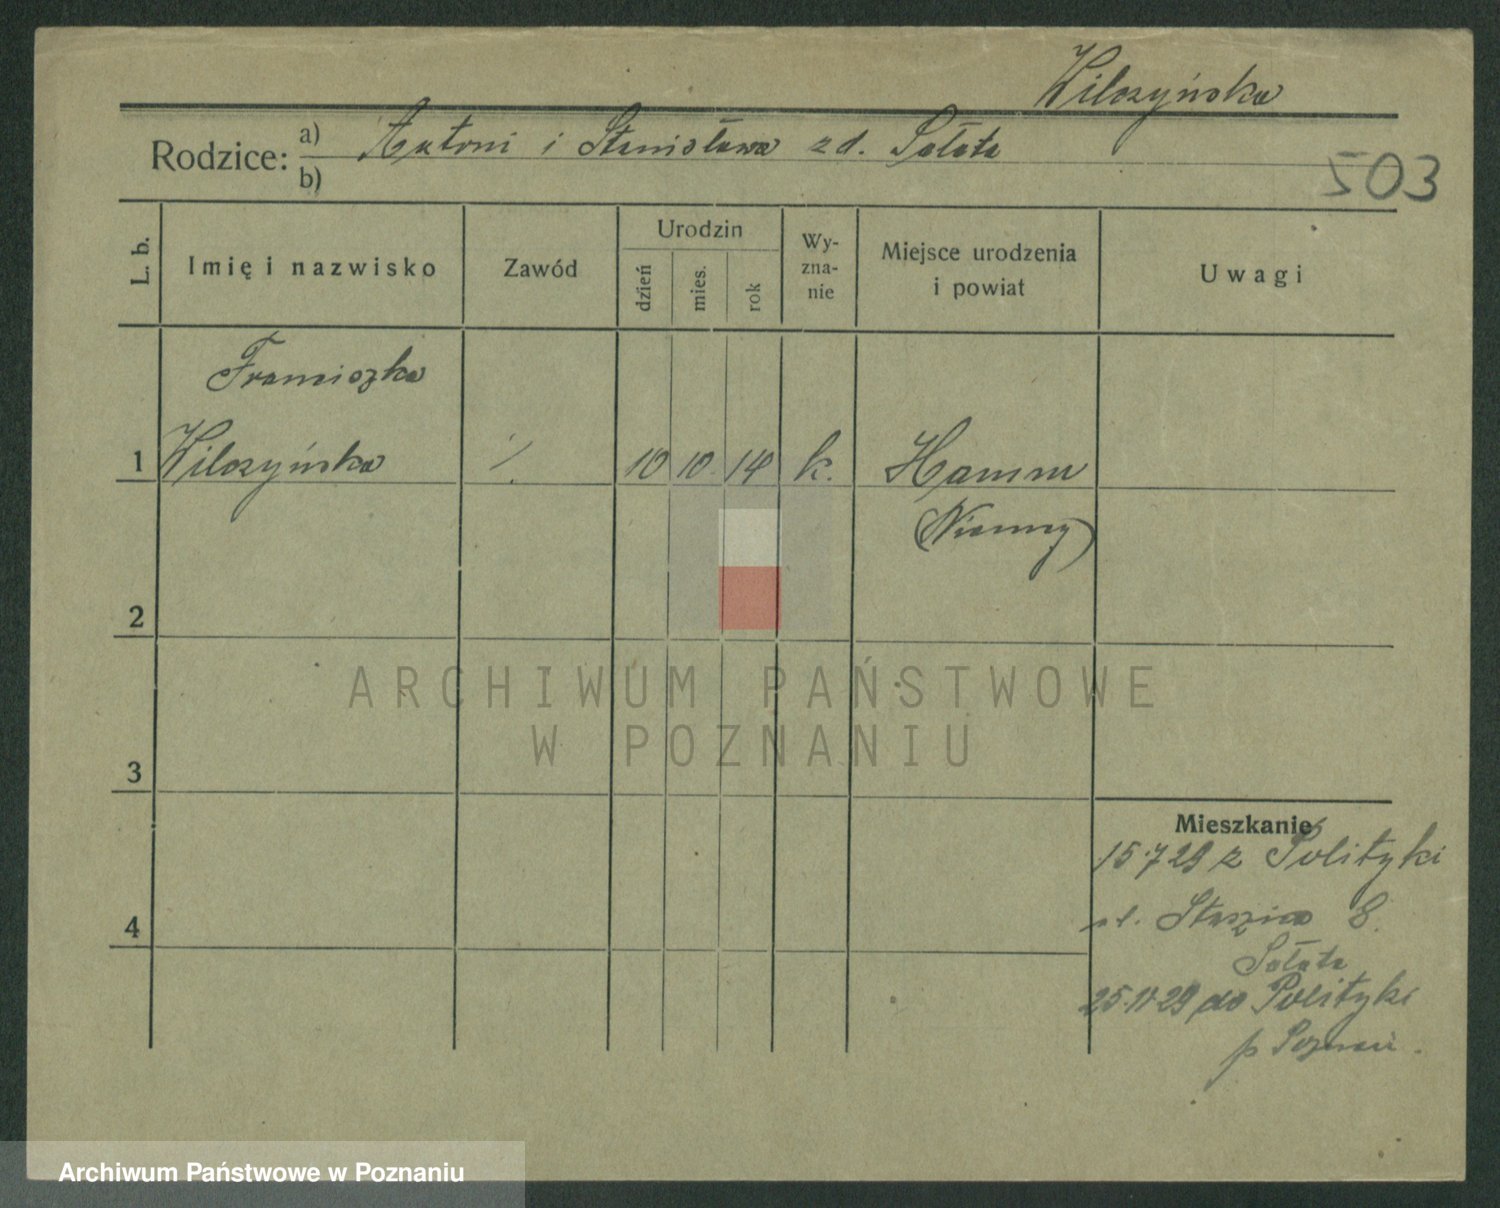 Wilczyńska
Rodzice: a) Antoni i Stanisława zd. Sołota
b)
503
L. b.
Imię i nazwisko
Zawód
Urodzin
dzień
mies.
rok
Wy-
zna-
nie
Miejsce urodzenia
i powiat
Uwagi
Franciszka
1 Wilczyńska ./. 10 10. 14 k. Hamm
(Niemcy)
2
ARCHIWUM PAŃSTWOWE
W POZNANIU
3
Mieszkanie
15.7 29 z Polityki
ul. Staszica 8.
4
Sołota
do Polityki
p Poznań.
Archiwum Państwowe w Poznaniu